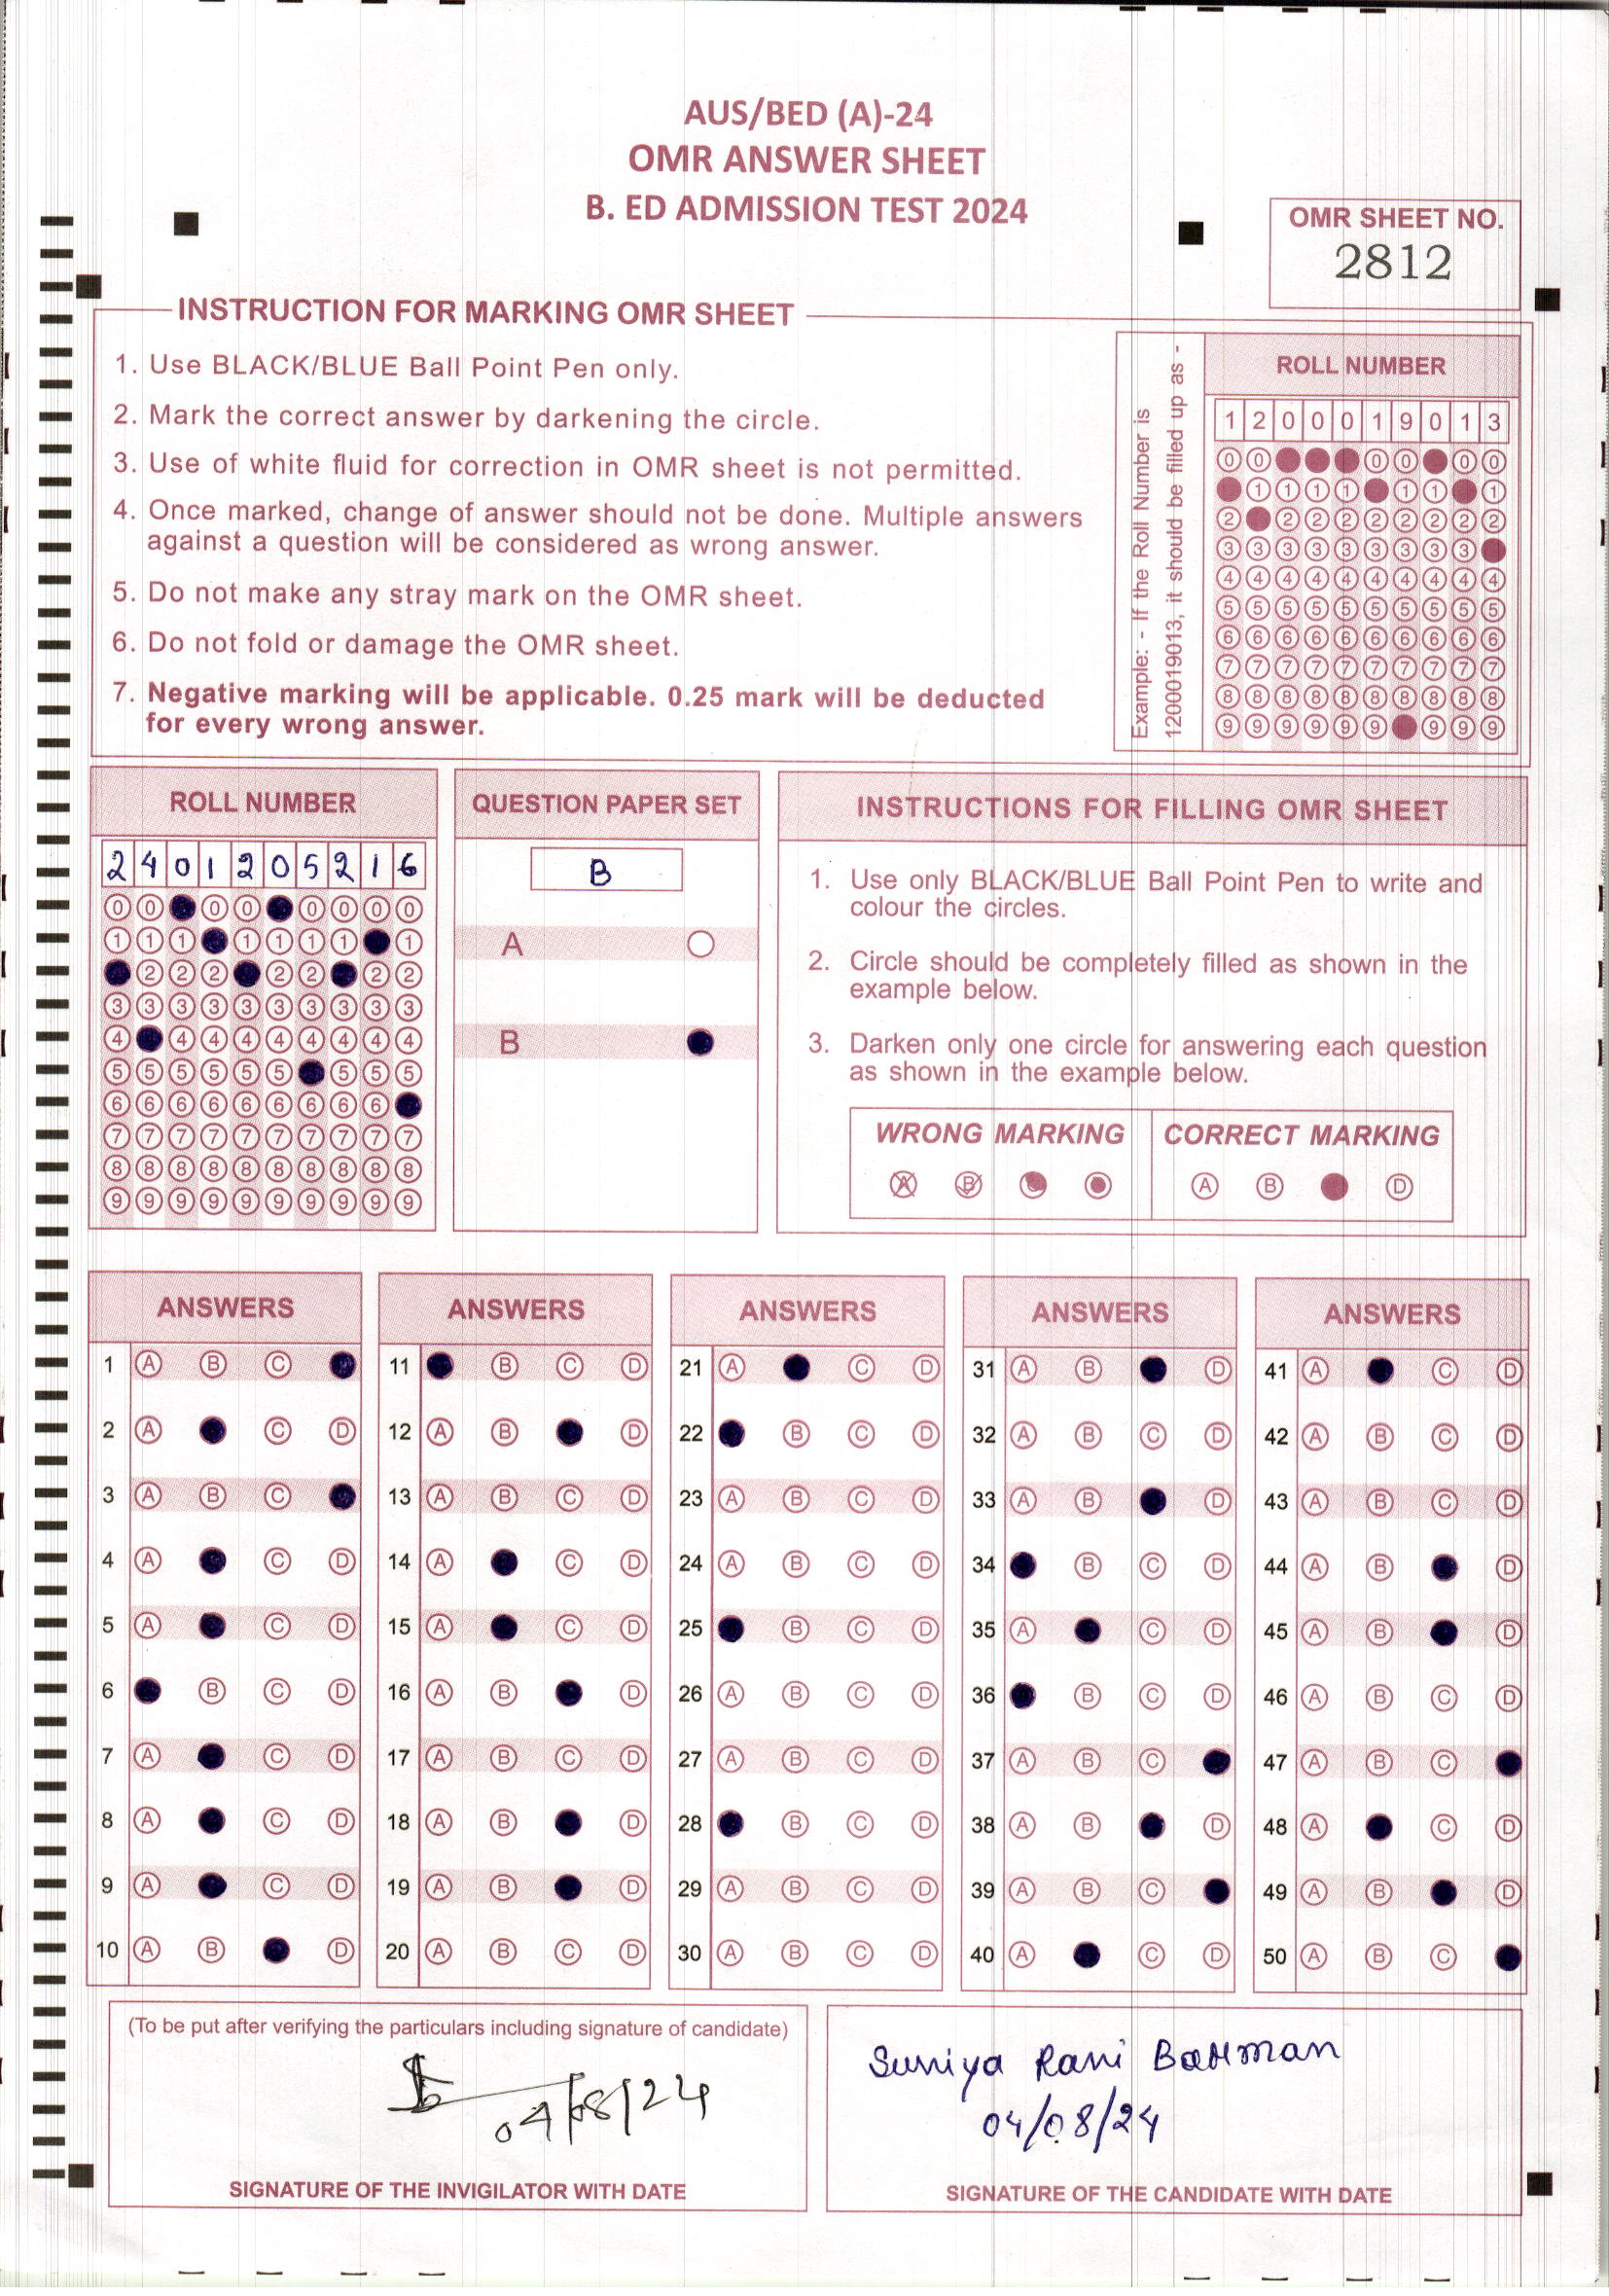 AUS/BED (A)-24
OMR ANSWER SHEET
B. ED ADMISSION TEST 2024
OMR SHEET NO.
2812
INSTRUCTION FOR MARKING OMR SHEET
1. Use BLACK/BLUE Ball Point Pen only.
2. Mark the correct answer by darkening the circle.
3. Use of white fluid for correction in OMR sheet is not permitted.
4. Once marked, change of answer should not be done. Multiple answers
against a question will be considered as wrong answer.
5. Do not make any stray mark on the OMR sheet.
6. Do not fold or damage the OMR sheet.
7. Negative marking will be applicable. 0.25 mark will be deducted
for every wrong answer.
Example: - If the Roll Number is
1200019013, it should be filled up as -
ROLL NUMBER
1 2 0 0 0 1 9 0 1 3
0 0 0 0 0 0
1 1 1 1 1 1 1
2 2 2 2 2 2 2 2 2
3 3 3 3 3 3 3 3 3
4 4 4 4 4 4 4 4 4 4
5 5 5 5 5 5 5 5 5 5
6 6 6 6 6 6 6 6 6 6
7 7 7 7 7 7 7 7 7 7
8 8 8 8 8 8 8 8 8 8
9 9 9 9 9 9 9 9 9
ROLL NUMBER
2 4 0 1 2 0 5 2 1 6
0 0 0 0 0 0 0 0
1 1 1 1 1 1 1 1
2 2 2 2 2 2 2
3 3 3 3 3 3 3 3 3 3
4 4 4 4 4 4 4 4 4
5 5 5 5 5 5 5 5 5
6 6 6 6 6 6 6 6 6
7 7 7 7 7 7 7 7 7 7
8 8 8 8 8 8 8 8 8 8
9 9 9 9 9 9 9 9 9 9
QUESTION PAPER SET
B
A
B
INSTRUCTIONS FOR FILLING OMR SHEET
1. Use only BLACK/BLUE Ball Point Pen to write and
colour the circles.
2. Circle should be completely filled as shown in the
example below.
3. Darken only one circle for answering each question
as shown in the example below.
WRONG MARKING
A B C
CORRECT MARKING
A B D
ANSWERS
1 A B C
2 A C D
3 A B C
4 A C D
5 A C D
6 B C D
7 A C D
8 A C D
9 A C D
10 A B D
ANSWERS
11 B C D
12 A B D
13 A B C D
14 A C D
15 A C D
16 A B D
17 A B C D
18 A B D
19 A B D
20 A B C D
ANSWERS
21 A C D
22 B C D
23 A B C D
24 A B C D
25 B C D
26 A B C D
27 A B C D
28 B C D
29 A B C D
30 A B C D
ANSWERS
31 A B D
32 A B C D
33 A B D
34 B C D
35 A C D
36 B C D
37 A B C
38 A B D
39 A B C
40 A C D
ANSWERS
41 A C D
42 A B C D
43 A B C D
44 A B D
45 A B D
46 A B C D
47 A B C
48 A C D
49 A B D
50 A B C
(To be put after verifying the particulars including signature of candidate)
04/08/24
SIGNATURE OF THE INVIGILATOR WITH DATE
Suniya Rani Barman
04/08/24
SIGNATURE OF THE CANDIDATE WITH DATE